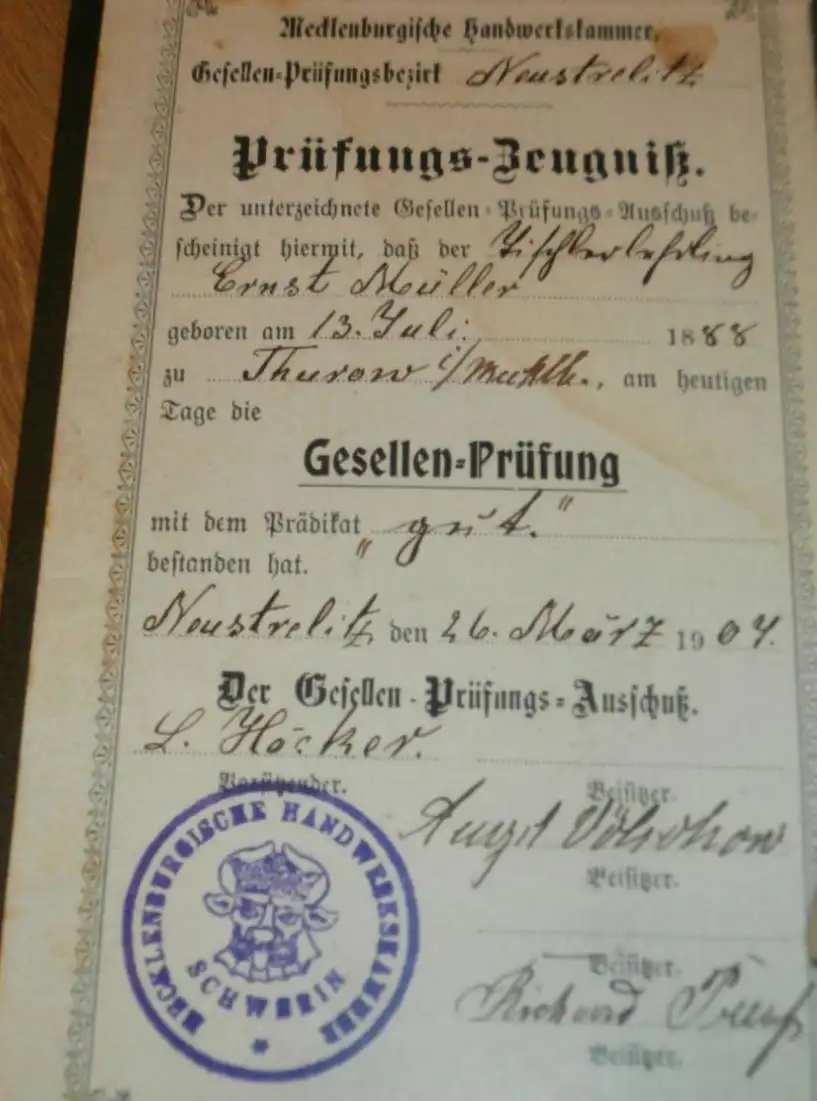 Mecklenburgische Handwerkskammer.
Gesellen-Prüfungsbezirk Neustrelitz
Prüfungs-Zeugniß.
Der unterzeichnete Gesellen-Prüfungs-Ausschuß be-
scheinigt hiermit, daß der Tischlerlehrling
Ernst Müller
geboren am 13. Juli 1888
zu Thurow i/Meklb., am heutigen
Tage die
Gesellen-Prüfung
mit dem Prädikat „gut.“
bestanden hat.
Neustrelitz, den 26. März 1907.
Der Gesellen-Prüfungs-Ausschuß.
L. Höcker.
Vorsitzender.
Beisitzer.
Völschow
Beisitzer.
Beisitzer.
Richard
Beisitzer.
MECKLENBURGISCHE HANDWERKSKAMMER
SCHWERIN